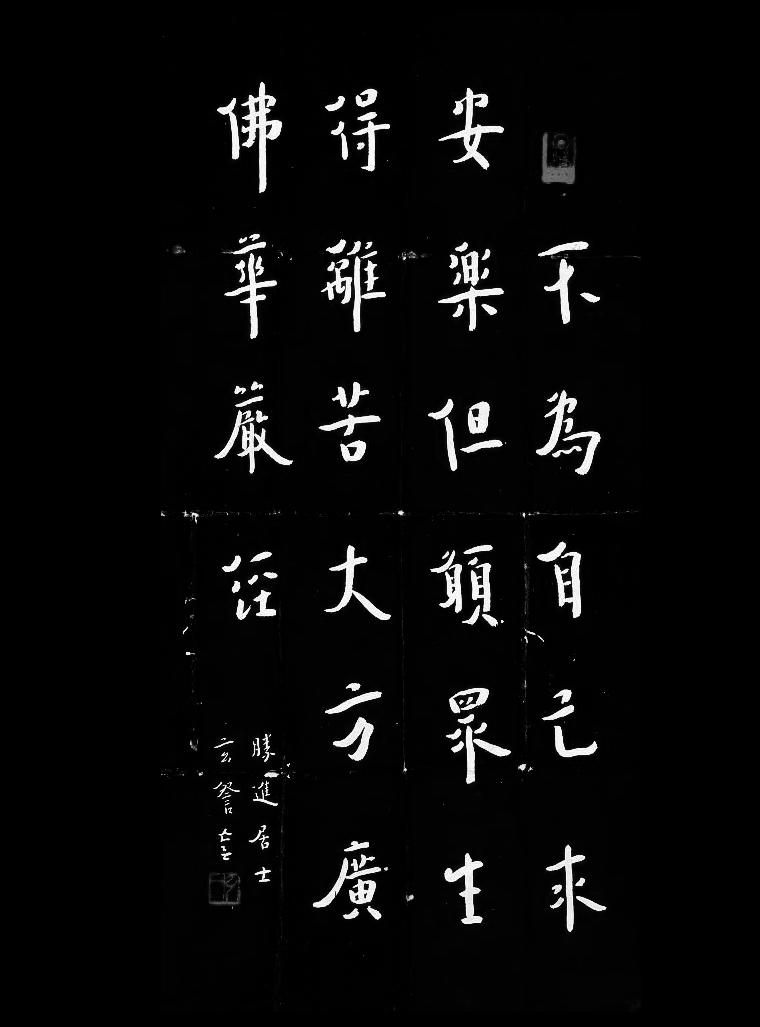 不為自己求
安樂但願眾生
得離苦大方廣
佛華嚴經
勝進居士
玄